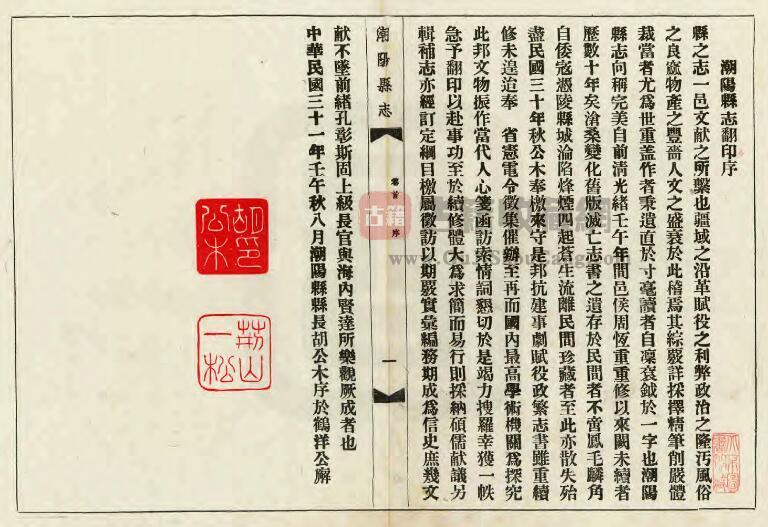 潮陽縣志翻印序
縣之志一邑文献之所繫也疆域之沿革賦役之利弊政治之隆汚風俗
之良窳物產之豐嗇人文之盛衰於此稽焉其綜覈詳採擇精筆削嚴體
裁當者尤為世重盖作者秉遺直於寸毫讀者自凜袞鉞於一字也潮陽
縣志向稱完美自前清光緒壬午年間邑侯周恆重重修以來闕未續者
歷數十年矣滄桑變化舊版滅亡志書之遺存於民間者不啻鳳毛麟角
自倭寇憑陵縣城淪陷烽煙四起蒼生流離民間珍藏者至此亦散失殆
盡民國三十年秋公木奉檄來守是邦抗建事劇賦役政繁志書雖重續
修未遑迨奉 省憲電令徵集催辦至再而國內最高學術機關為探究
此邦文物振作當代人心箋函訪索情詞懇切於是竭力搜羅幸獲一帙
急予翻印以赴事功至於續修體大為求簡而易行則採納碩儒献議另
輯補志亦經訂定綱目檄屬徵訪以期覈實彙編務期成為信史庶幾文
潮陽縣志
卷首 序
一
献不墜前緒孔彰斯固上級長官與海內賢達所樂觀厥成者也
中華民國三十一年壬午秋八月潮陽縣縣長胡公木序於鶴洋公廨
胡公木印
荊山一松
古籍
古籍收藏網